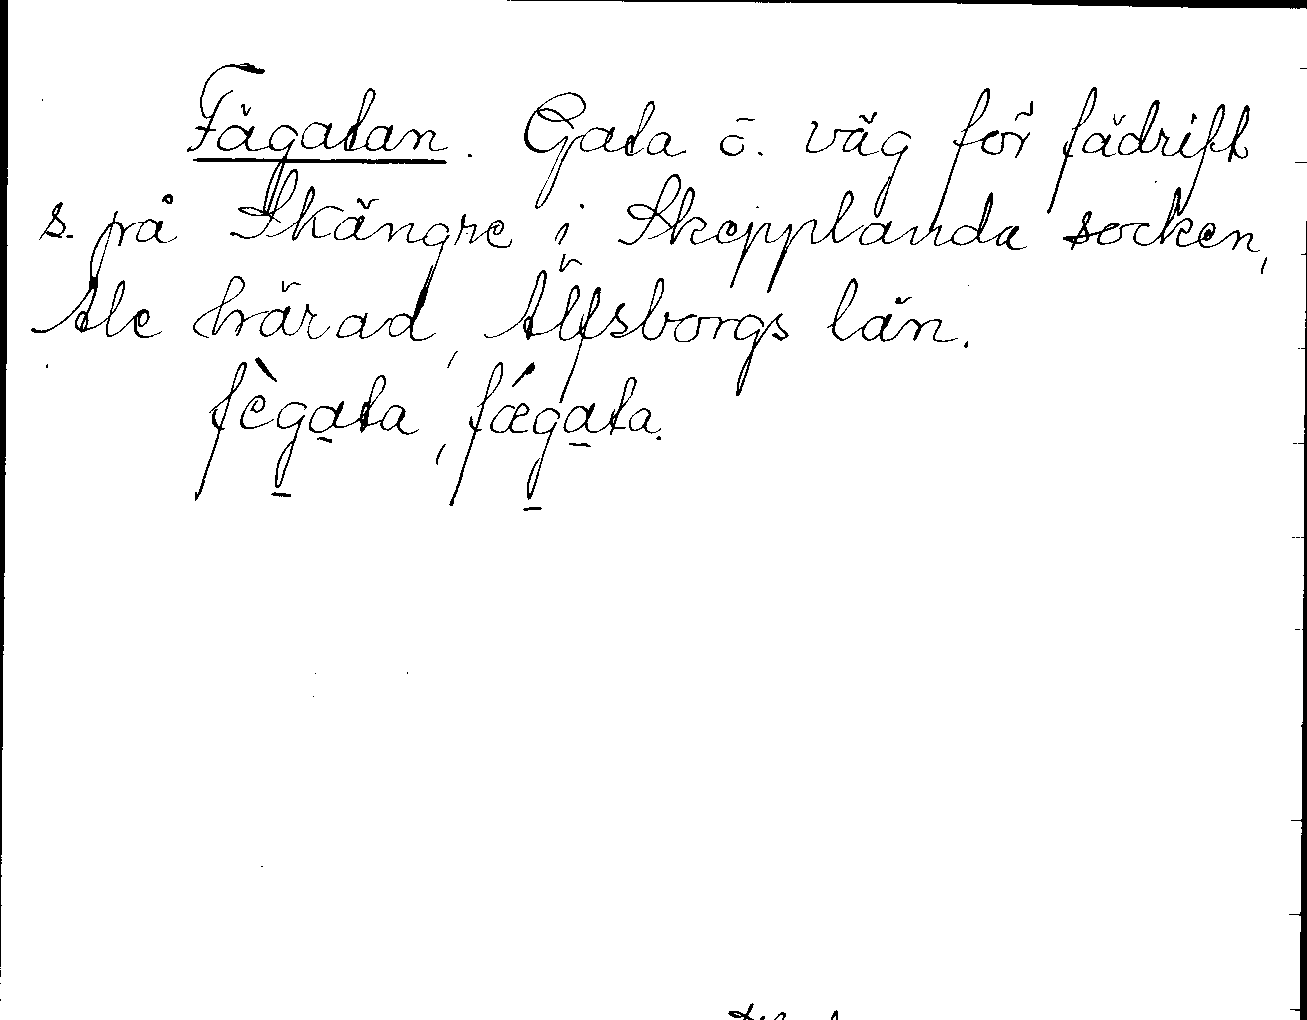 Fägatan. Gata ö. väg för fädrift
s. på Skängre i Skepplanda socken,
Ale härad, Älfsborgs län.
fègata, fǽgata.